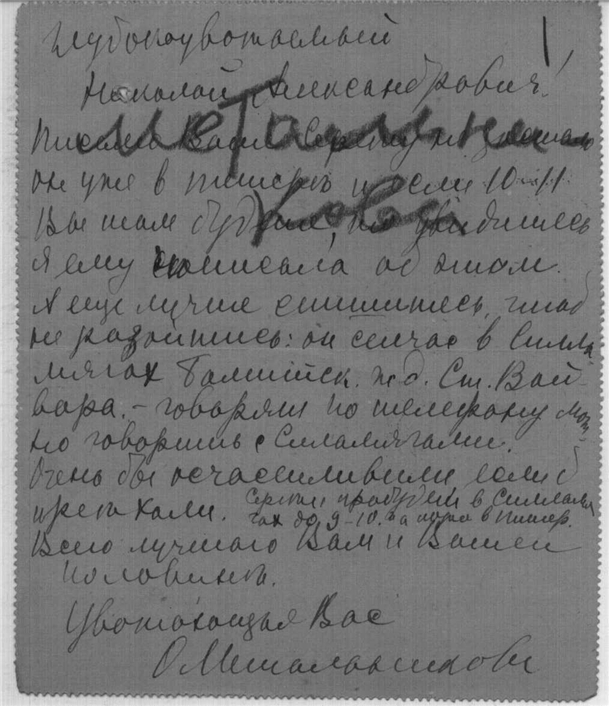 Глубокоуважаемый
Николай Александрович!
Письмо Ваше Сергею
он уже в Питере и если 10–11
Вы там будете, то увидитесь
я ему написала об этом.
А еще лучше спишитесь, чтоб
не разойтись: он сейчас в Силла
мягах Балтийск. ж.д. Ст. Вай-
вара. – говорят по телефону мож
но говорить с Силамягами.
Очень бы осчастливили если б
приехали. Сергей пробудет в Силламя
гах до 9–10. а потом в Питер.
Всего лучшего Вам и Вашей
половинке.
Уважающая Вас
О Метальникова
Метальни
кова